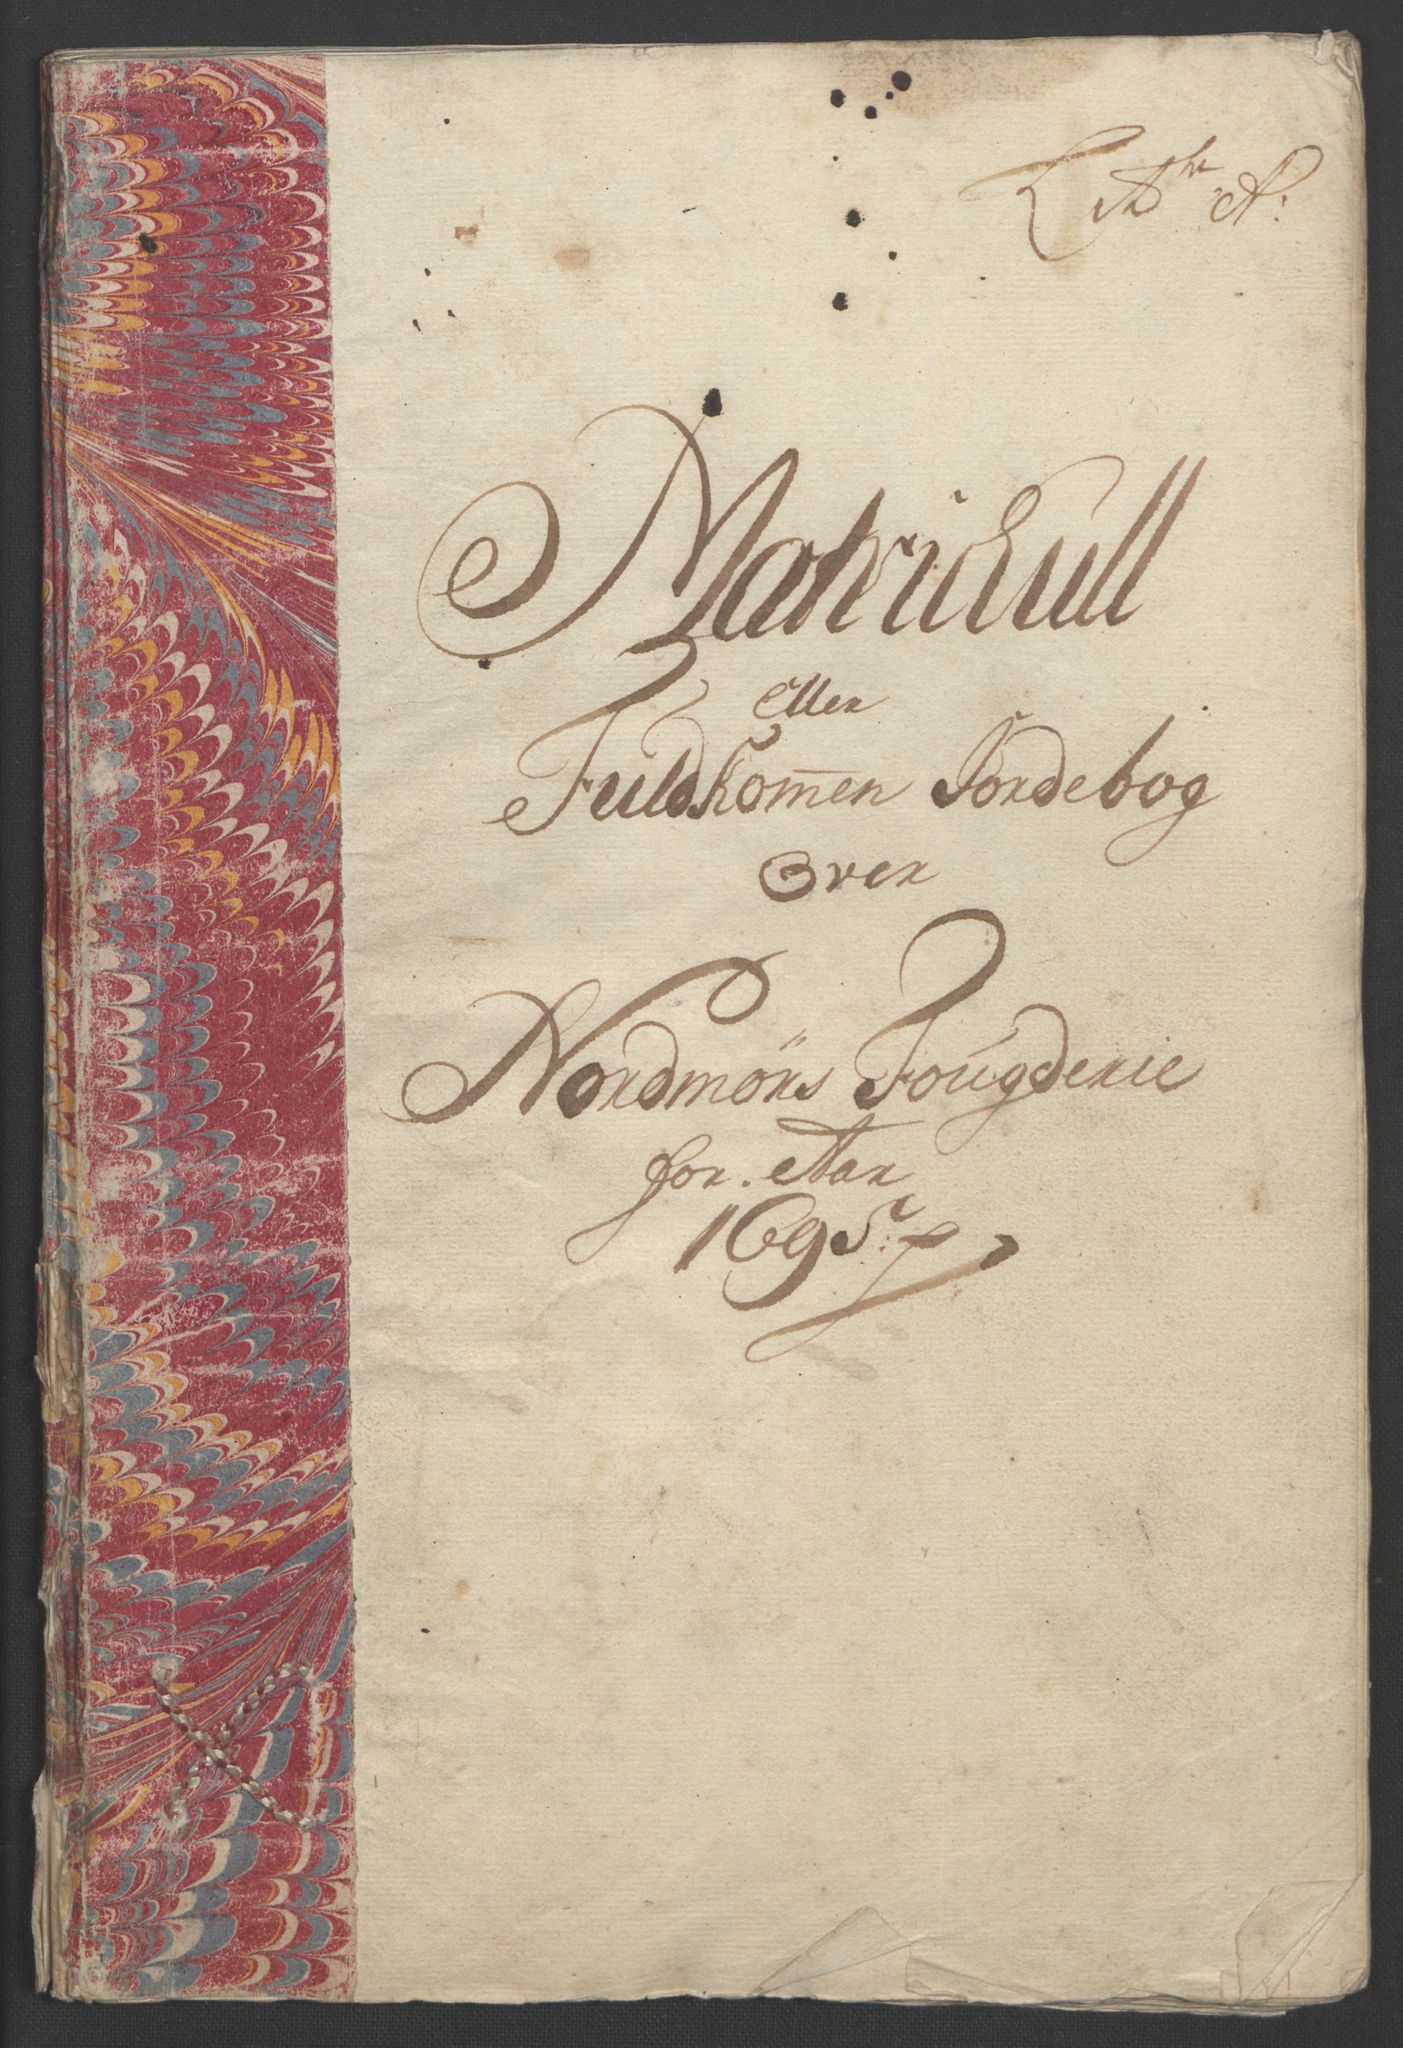 Litr A:
Matrickull
eller
Fuldkom̄en Jordebog
Over
Nordmörs Fougderie
for Aar
1695.